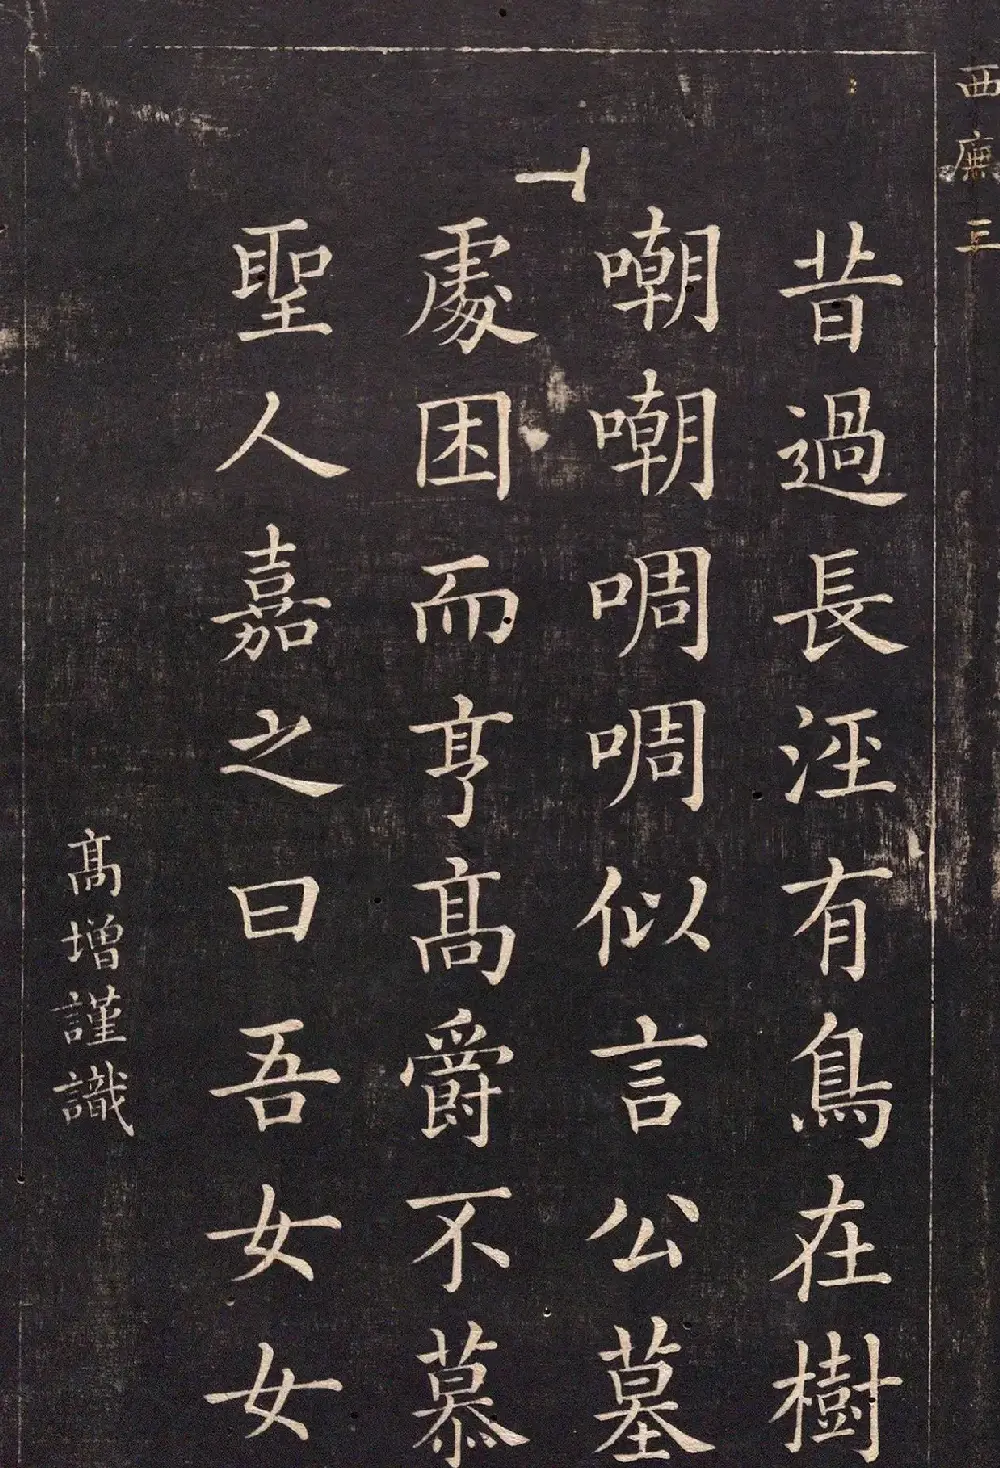 西廡三
昔過長淫有鳥在樹
嘲嘲啁啁似言公墓
處困而亨高爵不慕
聖人嘉之曰吾女女
高增謹識